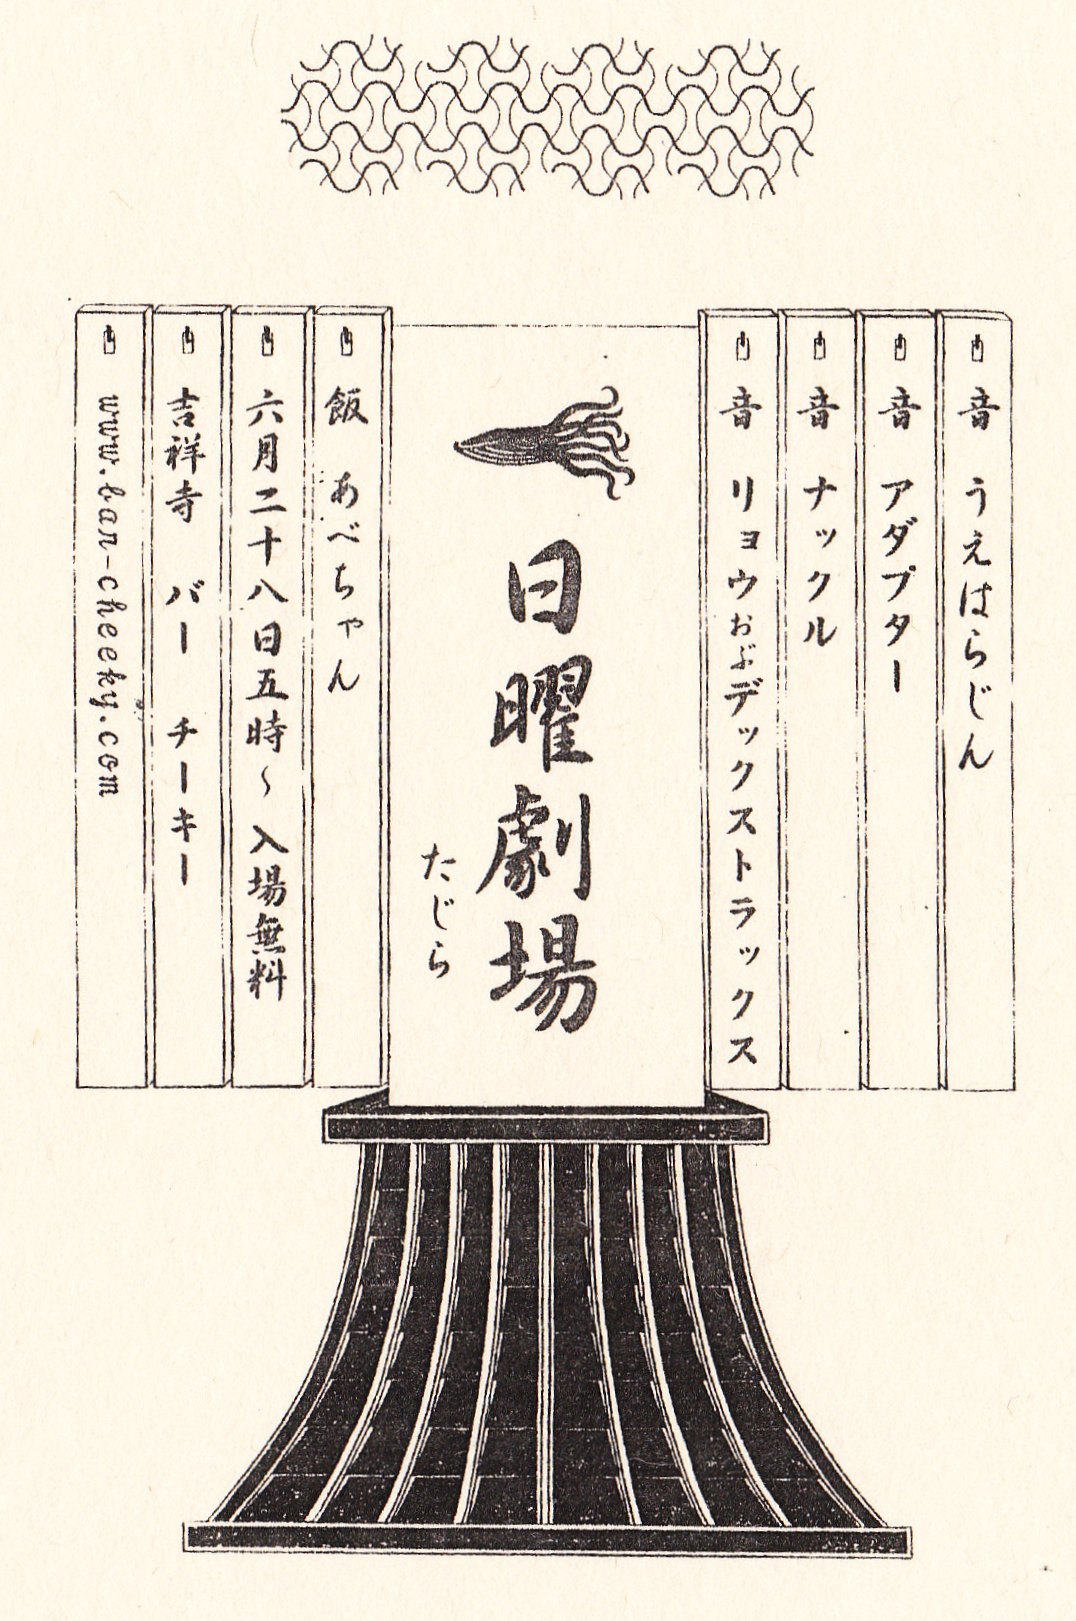 音 うえはらじん
音 アダプター
音 ナックル
音 リョウおぶデックストラックス
日曜劇場
たじら
飯 あべちゃん
六月二十八日五時~ 入場無料
吉祥寺 バー チーキー
www.ban-cheeky.com